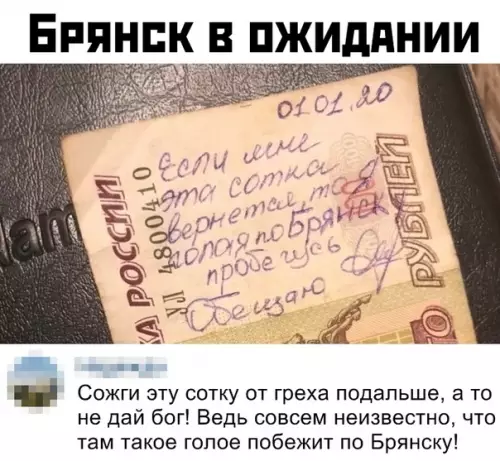 Брянск в ожидании
01.01.20
Если мне
эта сотка
вернется, то я
голая по Брянску
пробегусь
Обещаю
А РОССИИ
УЛ 4800410
РУБЛЕЙ
am
Сожги эту сотку от греха подальше, а то
не дай бог! Ведь совсем неизвестно, что
там такое голое побежит по Брянску!